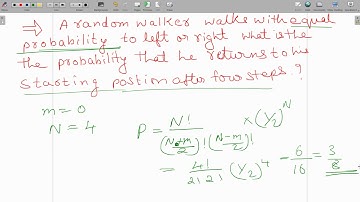 ⇒ A random walker walks with equal
probability to left or right what is the
the probability that he returns to his
starting postion after four steps ?
m = 0
N = 4
P = N! / (N+m/2)! (N-m/2)! × (1/2)^N
= 4! / 2! 2! (1/2)^4 - 6/16 = 3/8